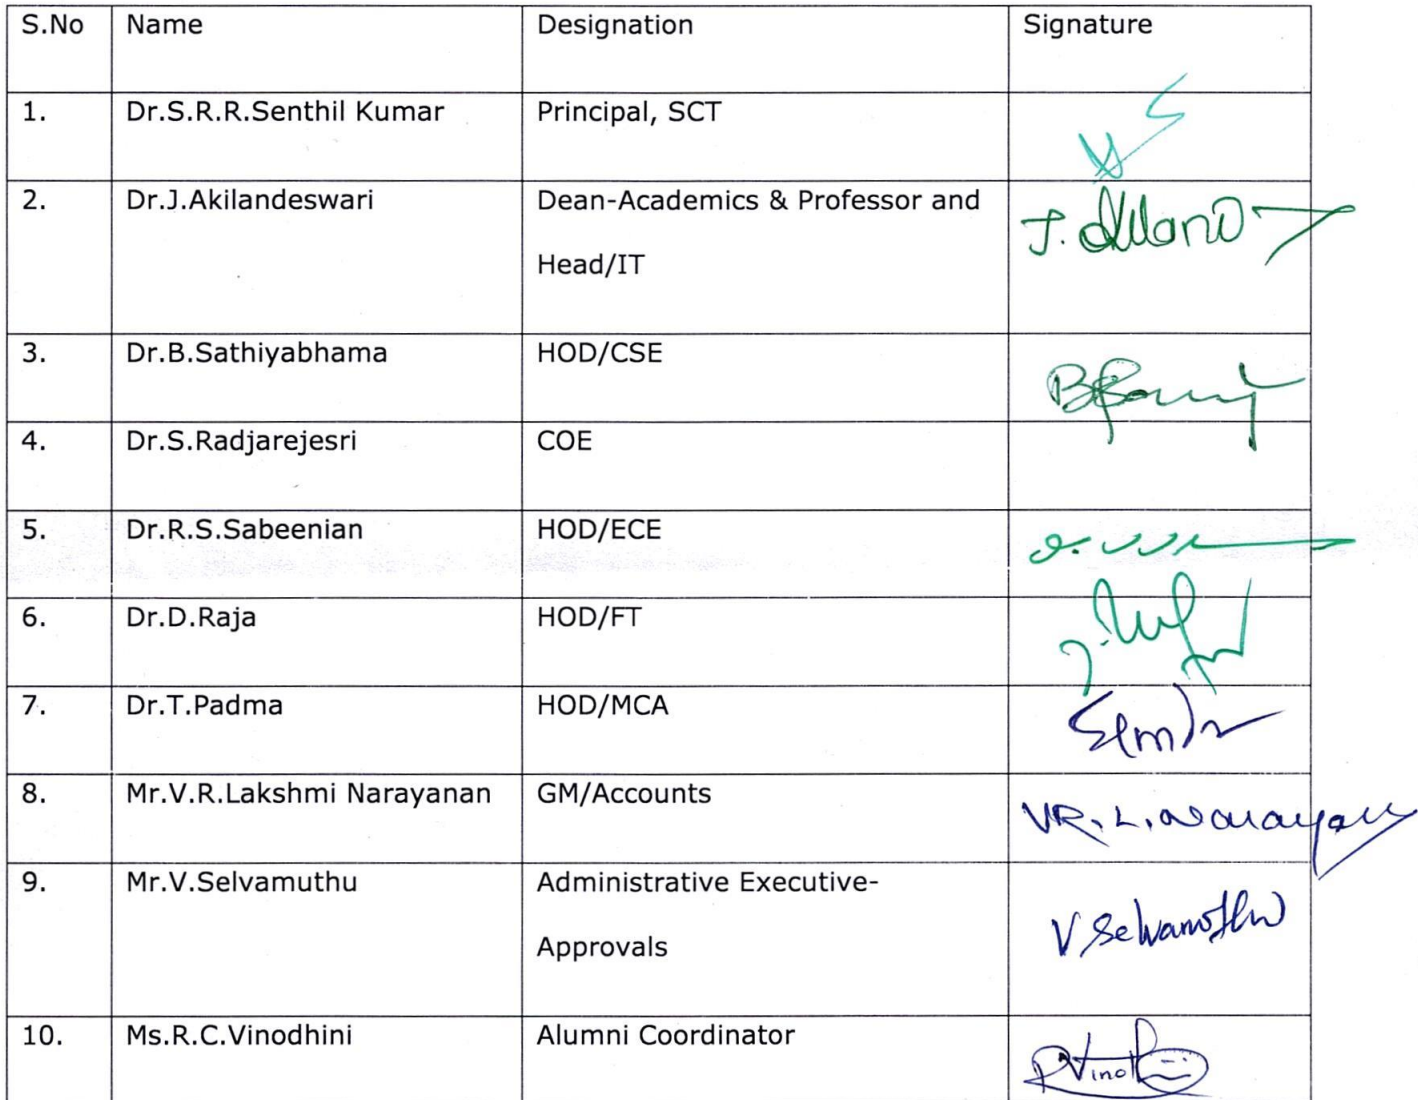 S.No Name Designation Signature
1. Dr.S.R.R.Senthil Kumar Principal, SCT
2. Dr.J.Akilandeswari Dean-Academics & Professor and
Head/IT
3. Dr.B.Sathiyabhama HOD/CSE
4. Dr.S.Radjarejesri COE
5. Dr.R.S.Sabeenian HOD/ECE
6. Dr.D.Raja HOD/FT
7. Dr.T.Padma HOD/MCA
8. Mr.V.R.Lakshmi Narayanan GM/Accounts VR.L.Narayan
9. Mr.V.Selvamuthu Administrative Executive- V Selvamuthu
Approvals
10. Ms.R.C.Vinodhini Alumni Coordinator